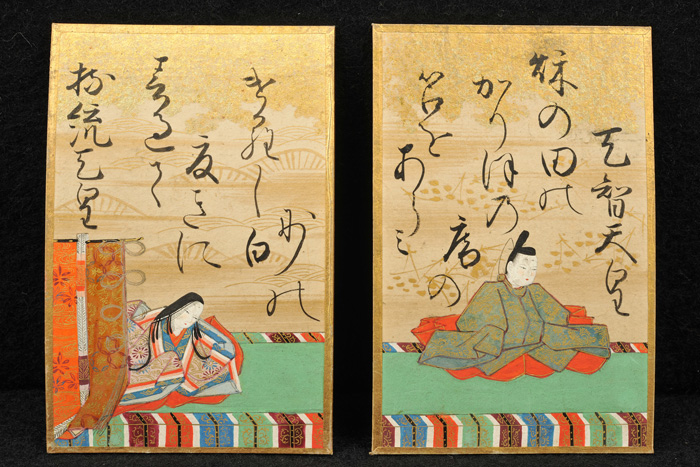 天智天皇
秋の田の
かりほの
庵の
苫を
あらミ
持統天皇
春過て
夏きに
けらし白
妙の